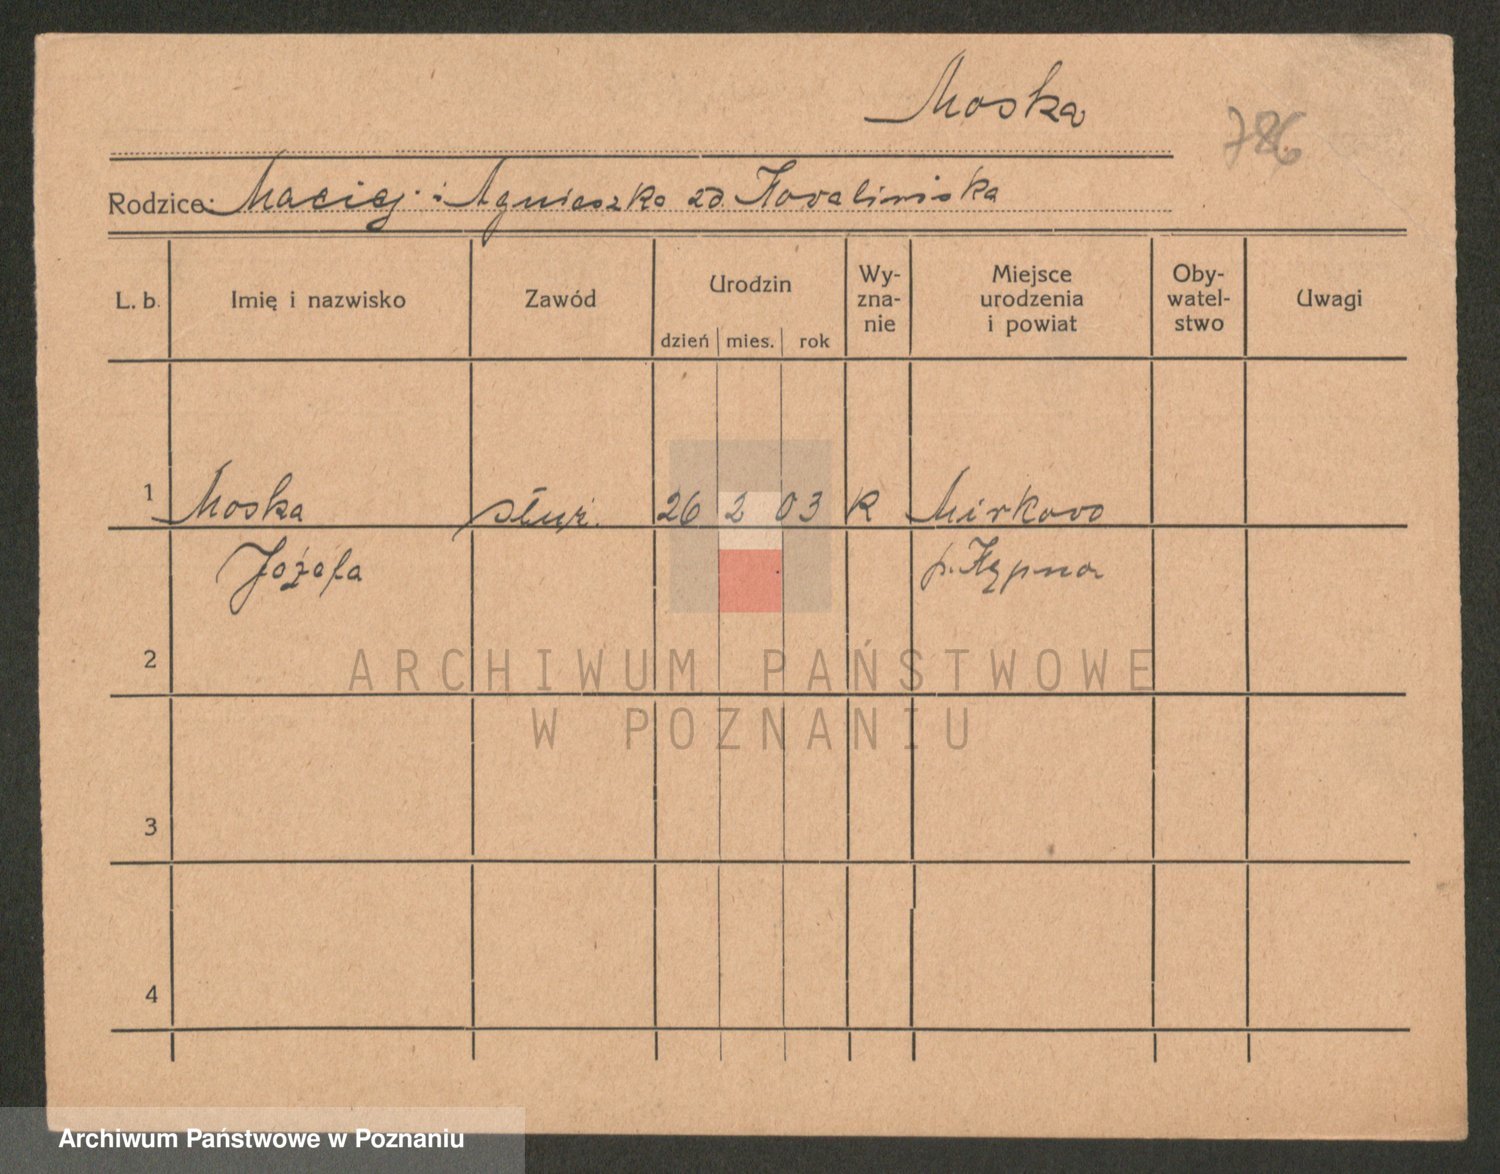 Moska
786
Rodzice: Maciej i Agnieszka zd. Kovalinska
L. b.
Imię i nazwisko
Zawód
Urodzin
dzień mies. rok
Wy-
zna-
nie
Miejsce
urodzenia
i powiat
Oby-
watel-
stwo
Uwagi
1 Moska służ. 26 2 03 k Mirkovo
Józefa p. Kępno
2
3
4
ARCHIWUM PAŃSTWOWE
W POZNANIU
Archiwum Państwowe w Poznaniu